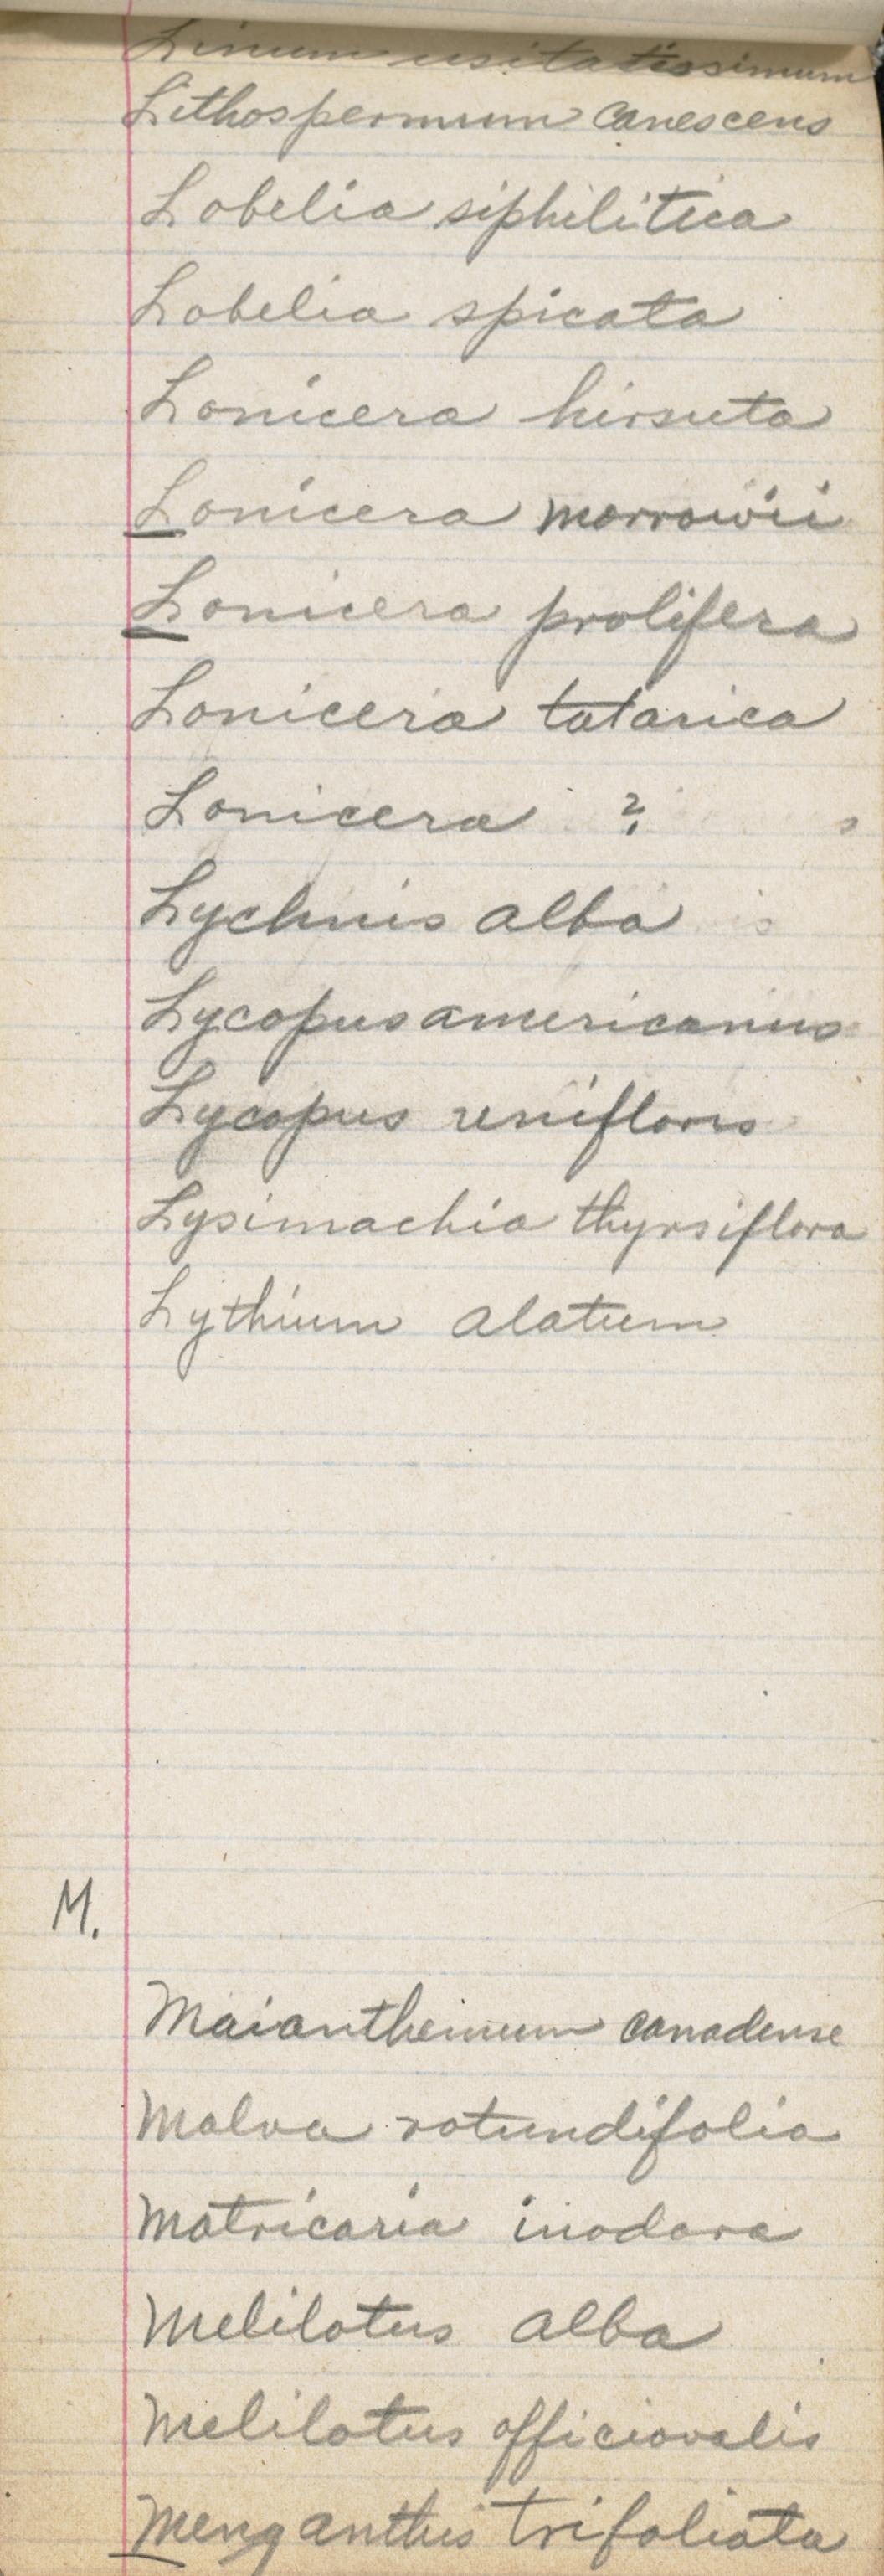 Linum usitatissimum
Lithospermum canescens
Lobelia siphilitica
Lobelia spicata
Lonicera hirsuta
Lonicera morrowii
Lonicera prolifera
Lonicera tatarica
Lonicera ?
Lychnis alba
Lycopus americanus
Lycopus uniflorus
Lysimachia thyrsiflora
Lythium alatum
M.
Maianthemum canadense
Malva rotundifolia
Matricaria inodora
Melilotus alba
Melilotus officionalis
Menyanthus trifoliata